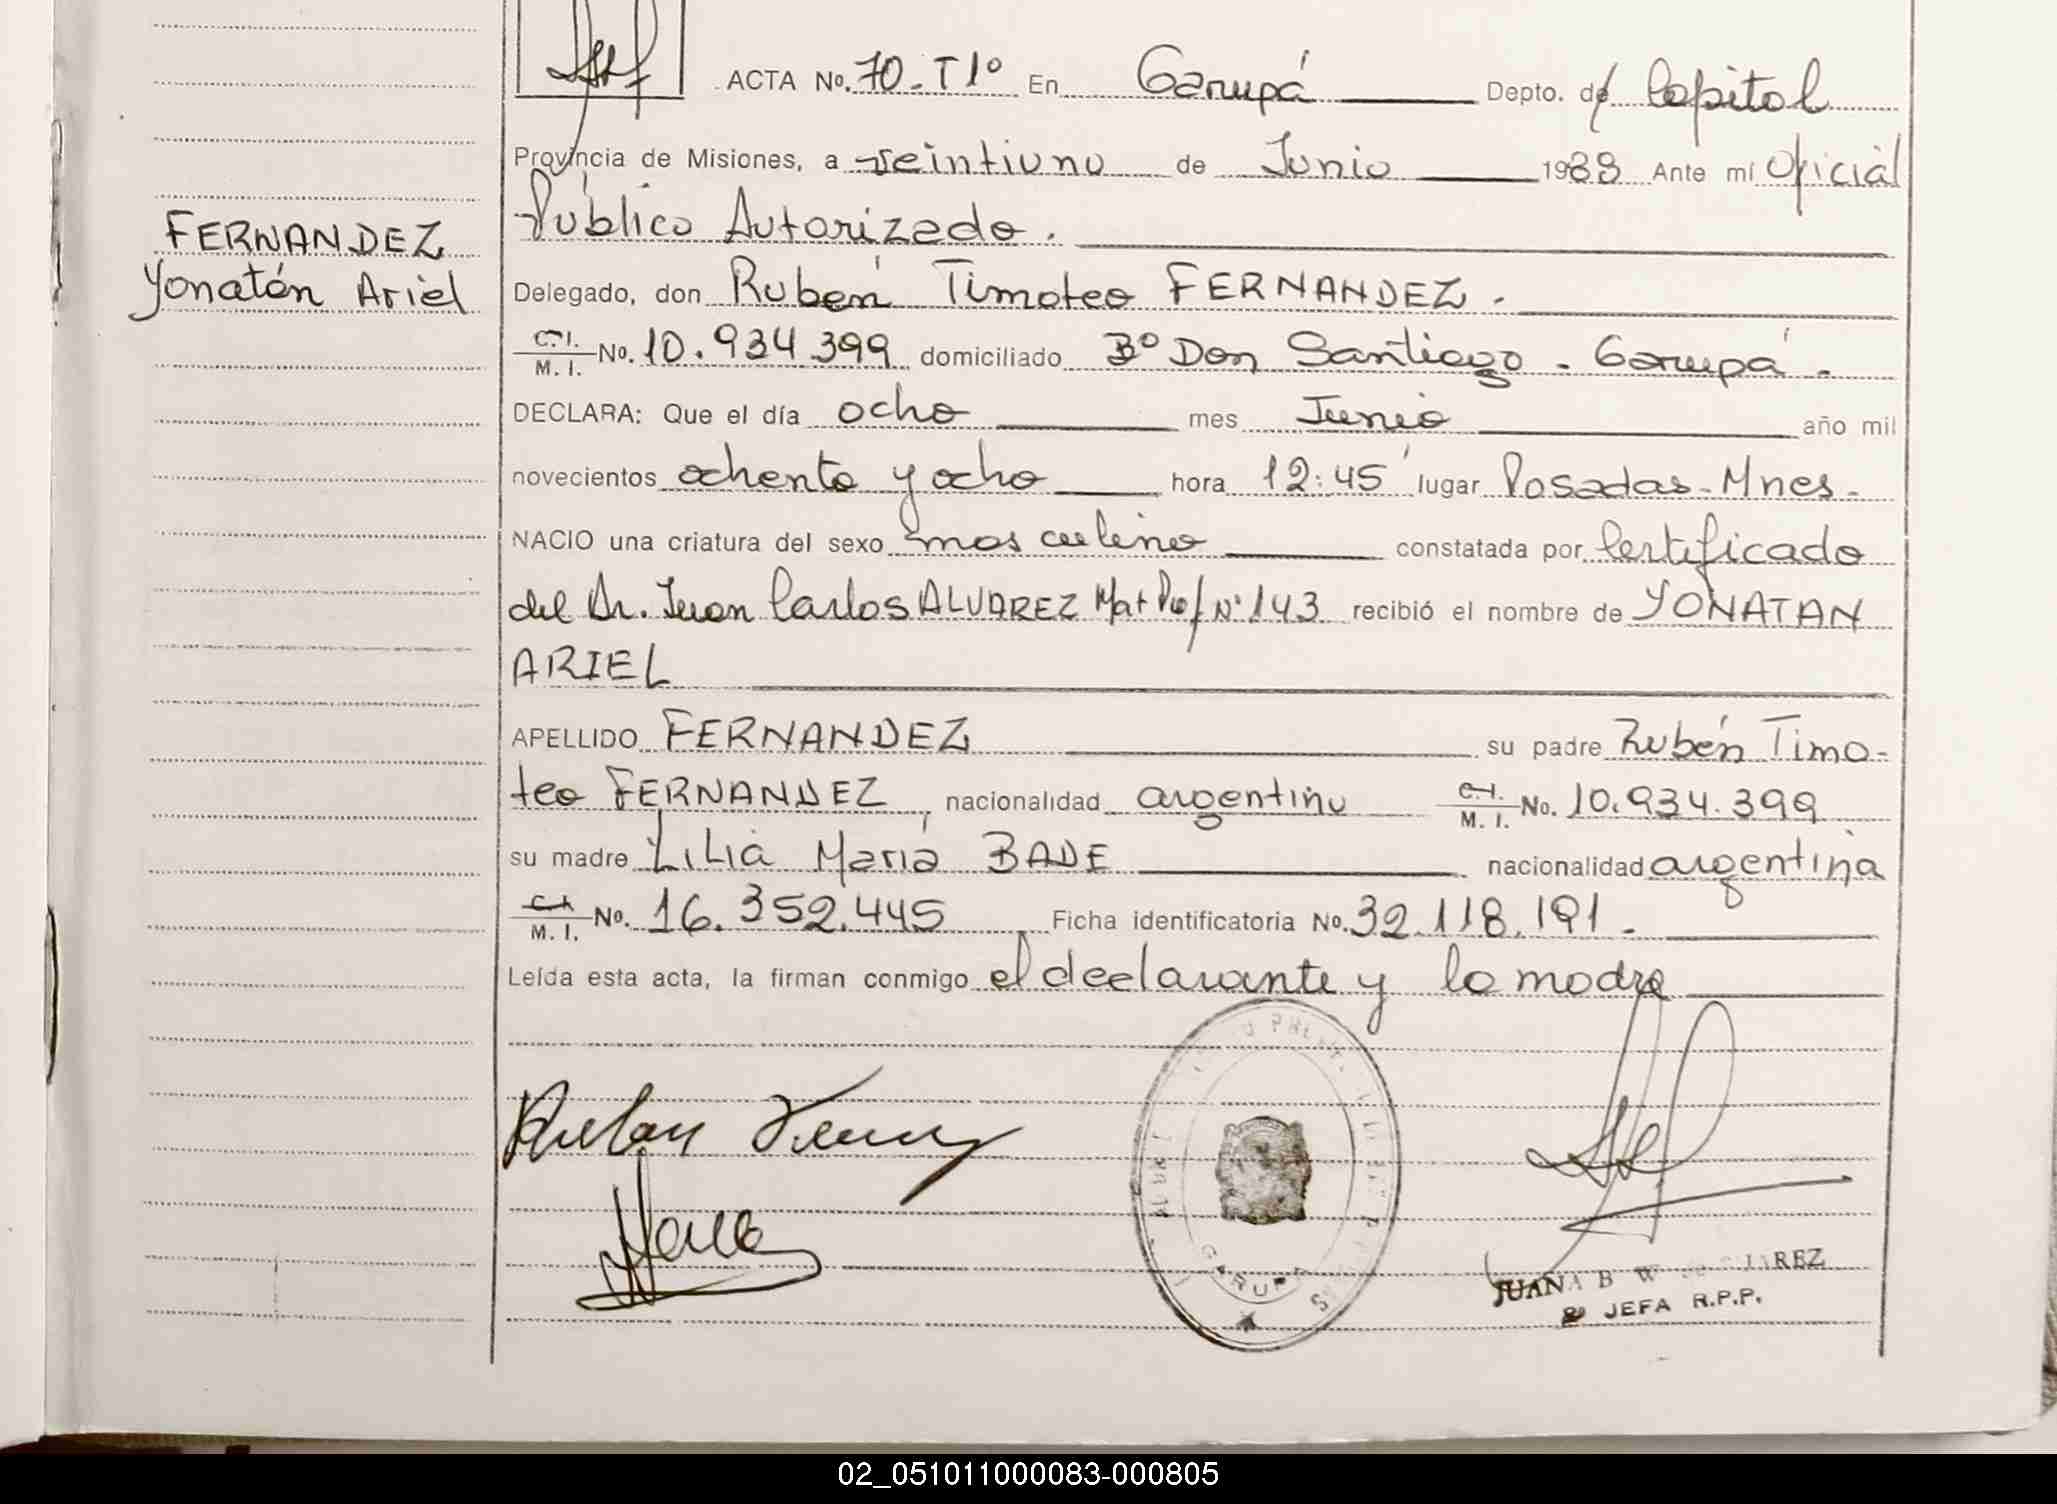 ACTA No. 70.T1º En Garupá Depto. de Capital
Provincia de Misiones, a veintiuno de Junio 1988 Ante mí Oficial
Público Autorizado.
FERNANDEZ
Yonatán Ariel
Delegado, don Rubén Timoteo FERNANDEZ.
C.I. M. I. No. 10.934.399 domiciliado Bº Don Santiago - Garupá.
DECLARA: Que el día ocho mes Junio año mil
novecientos ochenta y ocho hora 12:45 lugar Posadas-Mnes.
NACIO una criatura del sexo masculino constatada por Certificado
del Dr. Juan Carlos ALVAREZ Mat Prof Nº 143 recibió el nombre de YONATAN
ARIEL
APELLIDO FERNANDEZ su padre Rubén Timo-
teo FERNANDEZ nacionalidad argentino C.I. M. I. No. 10.934.399
su madre Lilia María BADE nacionalidad argentina
C.I. M. I. No. 16.352.445 Ficha identificatoria No. 32.118.191.-
Leída esta acta, la firman conmigo el declarante y la madre
GARUPA
JUANA B W
JEFA R.P.P.
02_051011000083-000805